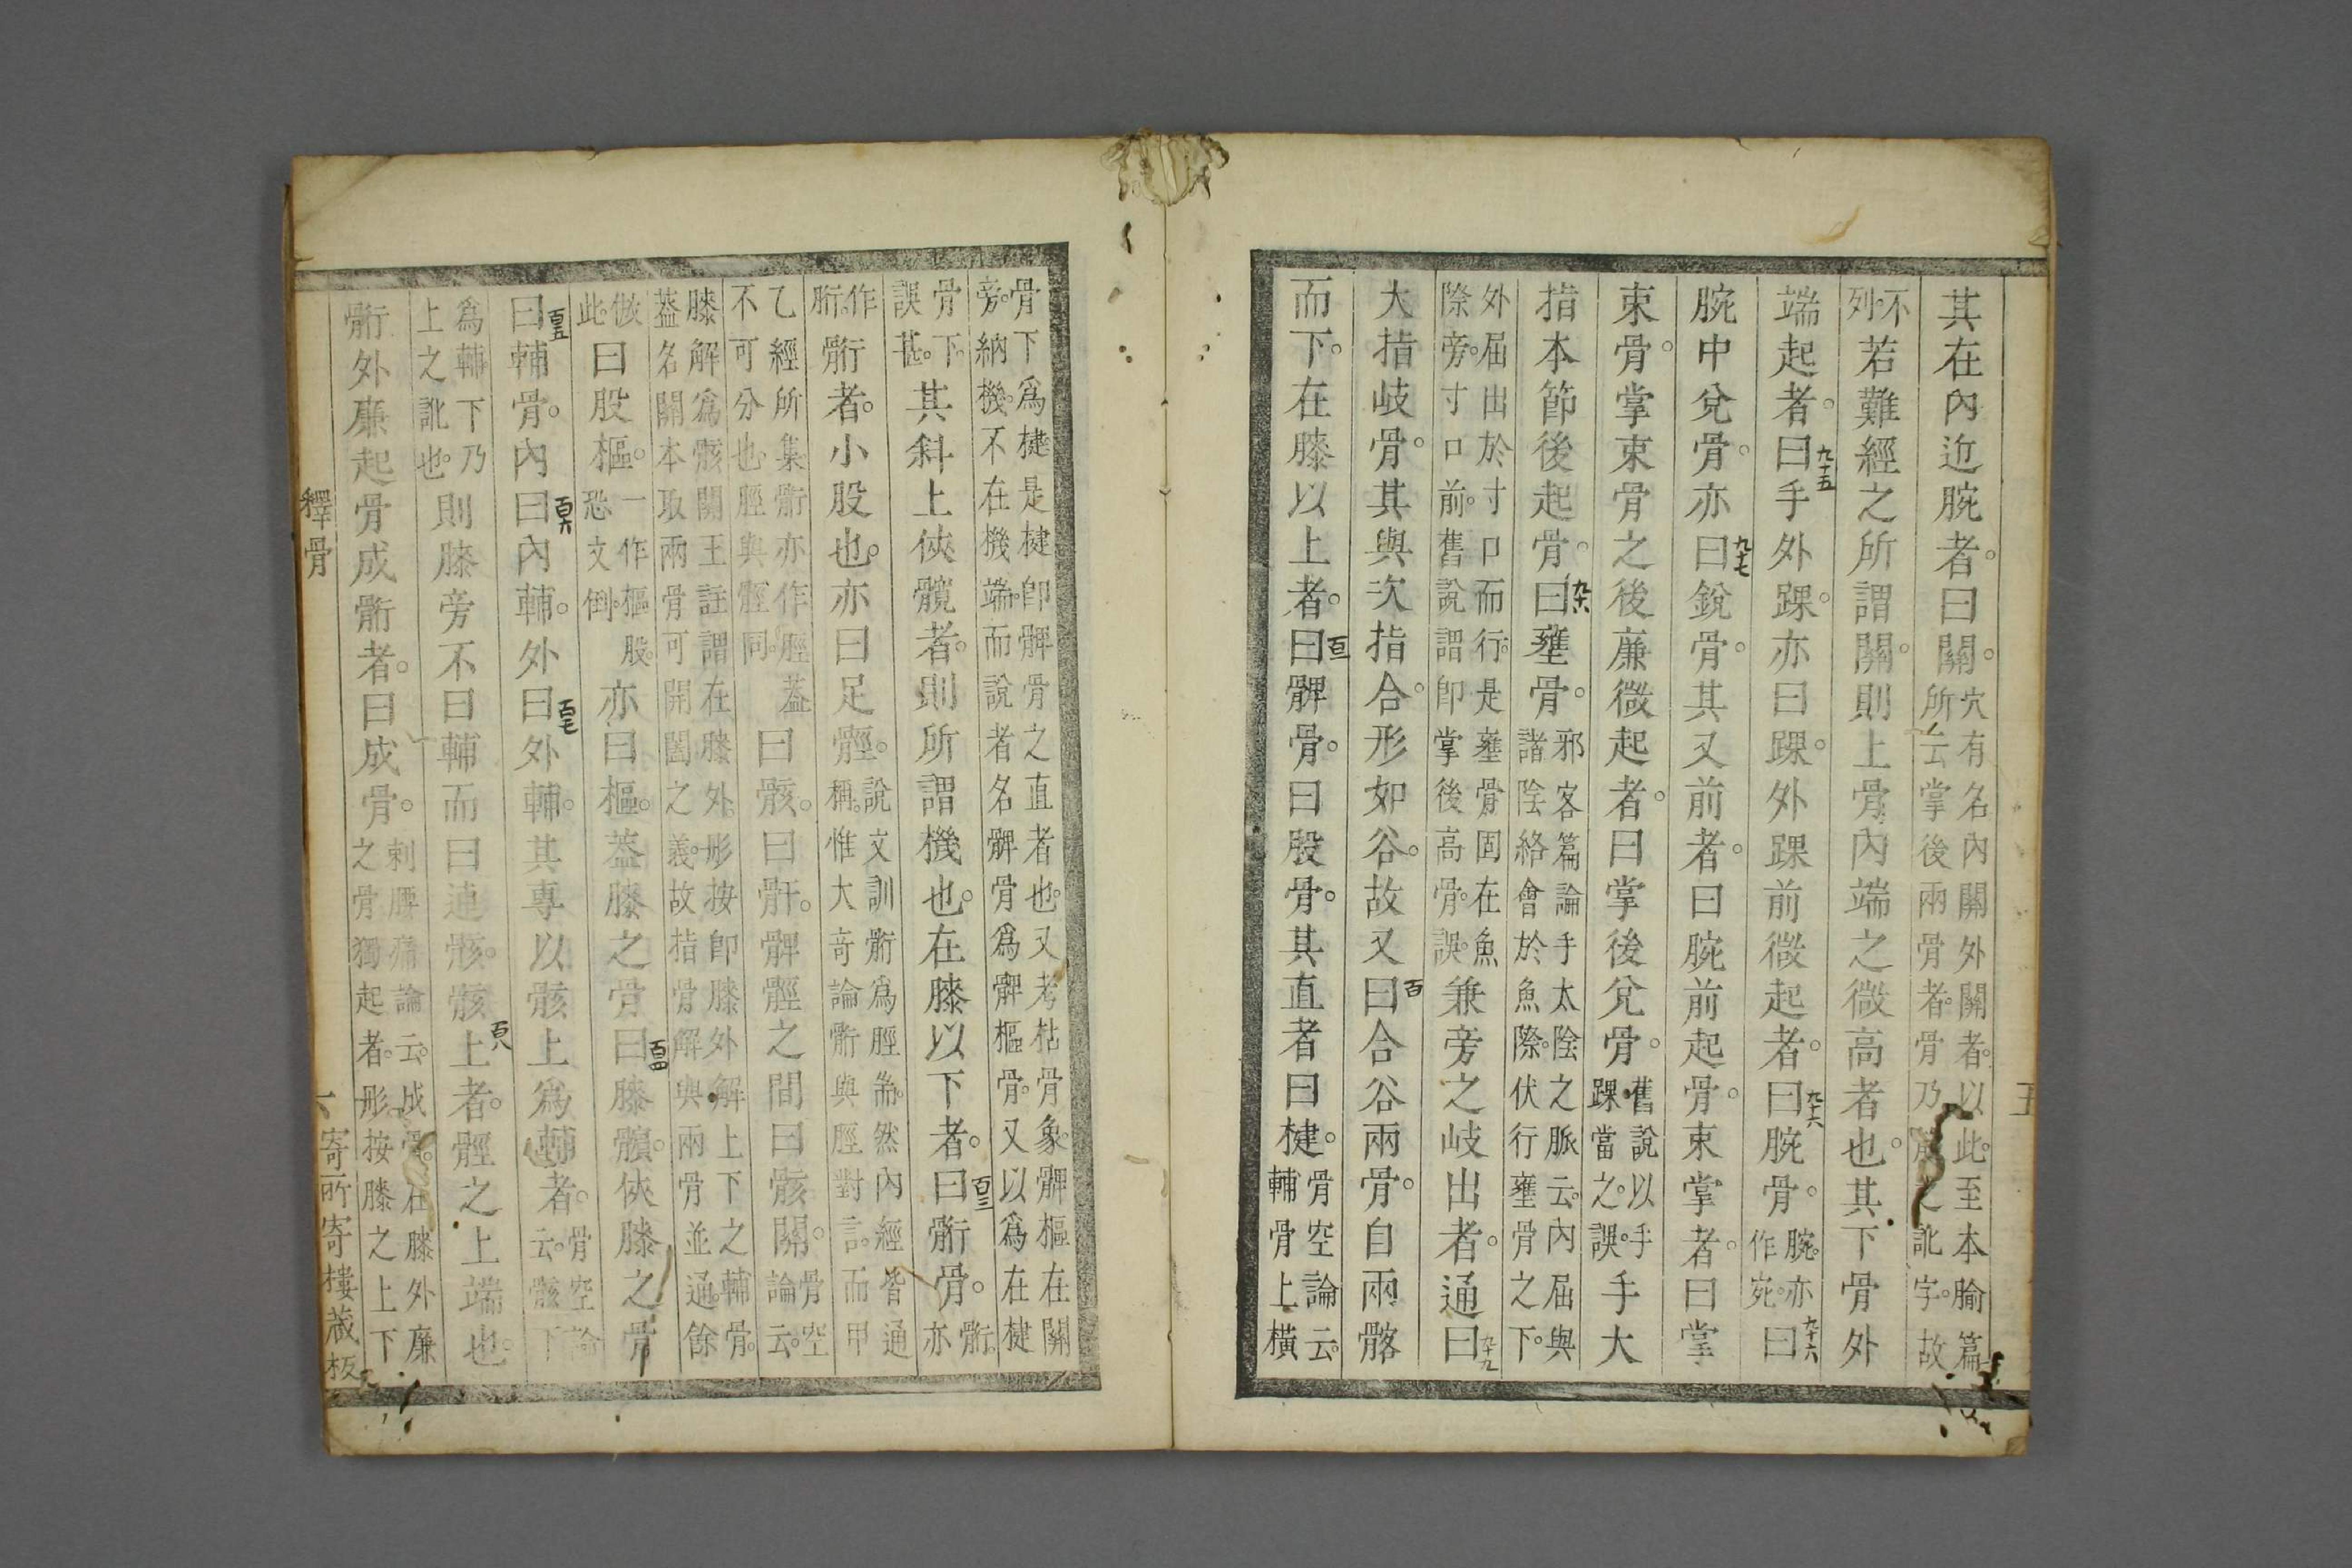 其在內近腕者曰關穴有名內關外關者以此至本腧篇所云掌後兩骨者骨乃之訛字故
不列若難經之所謂關則上骨內端之微高者也其下骨外
端起者曰手外踝亦曰踝外踝前微起者曰腕骨腕亦作宛曰
腕中兌骨亦曰銳骨其又前者曰腕前起骨束掌者曰掌
束骨掌束骨之後廉微起者曰掌後兌骨舊說以手踝當之誤手大
指本節後起骨曰壅骨邪客篇論手太陰之脈云內屈與諸陰絡會於魚際伏行壅骨之下
外屈出於寸口而行是壅骨固在魚際旁寸口前舊說謂卽掌後高骨誤兼旁之岐出者通曰
大指岐骨其與次指合形如谷故又曰合谷兩骨自兩髂
而下在膝以上者曰髀骨曰股骨其直者曰楗骨空論云輔骨上橫
骨下爲楗是楗卽髀骨之直者也又考枯骨象髀樞在關旁納機不在機端而說者名髀骨爲髀樞骨又以爲在楗
骨下誤甚其斜上俠髖者則所謂機也在膝以下者曰䯒骨䯒亦
作胻䯒者小股也亦曰足脛說文訓䯒爲脛耑然內經皆通稱惟大奇論䯒與脛對言而甲
乙經所集䯒亦作脛蓋不可分也脛與䯒同曰骸曰骭髀脛之間曰骸關骨空論云
膝解爲骸關王註謂在膝外形按卽膝外解上下之輔骨蓋名關本取兩骨可開闔之義故指骨解與兩骨並通餘
倣此曰股樞一作樞股恐文倒亦曰樞蓋膝之骨曰膝髕俠膝之骨
曰輔骨內曰內輔外曰外輔其專以骸上爲輔者骨空論云骸下
爲輔下乃上之訛也則膝旁不曰輔而曰連骸骸上者脛之上端也
䯒外廉起骨成䯒者曰成骨刺腰痛論云成骨在膝外廉之骨獨起者形按膝之上下
釋骨
寄所寄樓藏板
五
九十五
九十六
九十七
九十八
九十九
百
百一
百三
百四
百五
百六
百七
百八